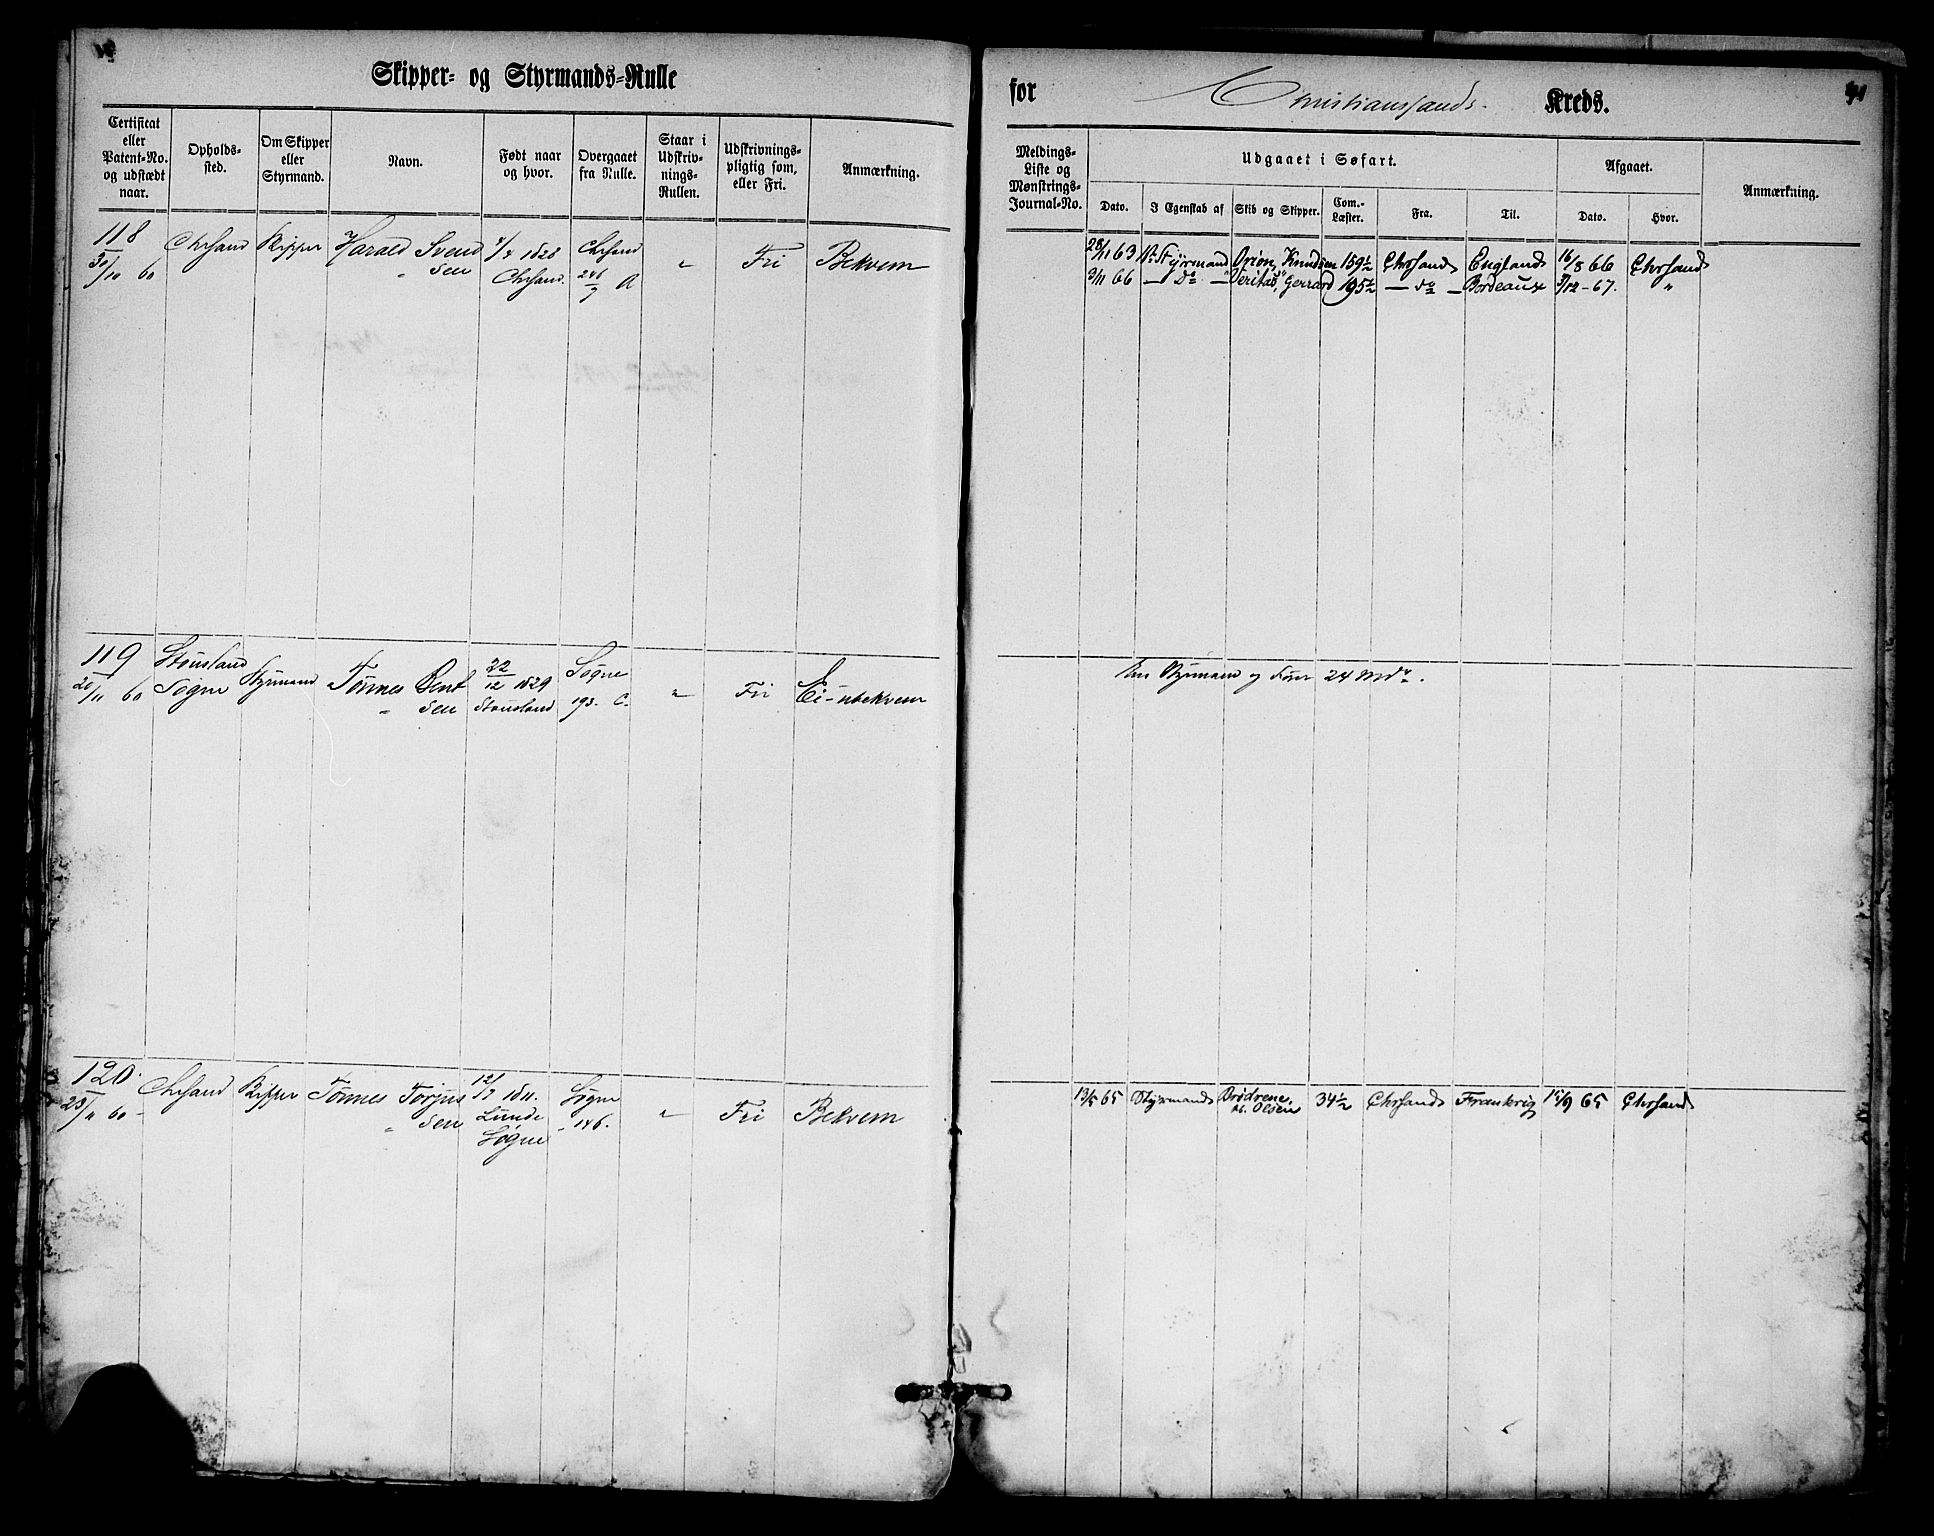 Skipper- og Styrmands-Rulle
Certificat eller Patent-No. og udstædt naar.
Opholds-sted.
Om Skipper eller Styrmand.
Navn.
Født naar og hvor.
Overgaaet fra Rulle.
Staar i Udskriv-nings-Rullen.
Udskrivnings-pligtig som, eller Fri.
Anmærkning.
118 Chrsand Skipper Harald Svend 4/4 1828 Chrsand " Fri Bekvem
30/10 60 " sen Chrsand 246/7 A
119 Stousland Styrmand Tønnes Bent 22/12 1829 Søgne " Fri Ei-ubekvem
20/11 60 Søgne " sen Stousland 193. C.
120. Chrsand Skipper Tønnes Torjus 12/7 1811. Søgne " Fri Bekvem
23/11 60 - " sen Lunde - 146.
Søgne
for Christianssands Kreds. 91
Meldings-Liste og Mønstrings-Journal-No.
Udgaaet i Søfart.
Dato.
I Egenskab af
Skib og Skipper.
Com.-Læster.
Fra.
Til.
Afgaaet.
Dato.
Hvor.
Anmærkning.
28/11 63 Styrmand Orion, Knudsen 159 1/2 Chrsand England 16/8 66 Chrsand
3/11 66 — do — "Veritas", Gerrard 195 1/2 — do — Bordeaux 9/12 - 67. "
Styrmand og Fører 24 Mdr.
13/5 65 Styrmand Brødrene, 34 1/2 Chrsand Frankrig 15/9 65 Chrsand
Olsen